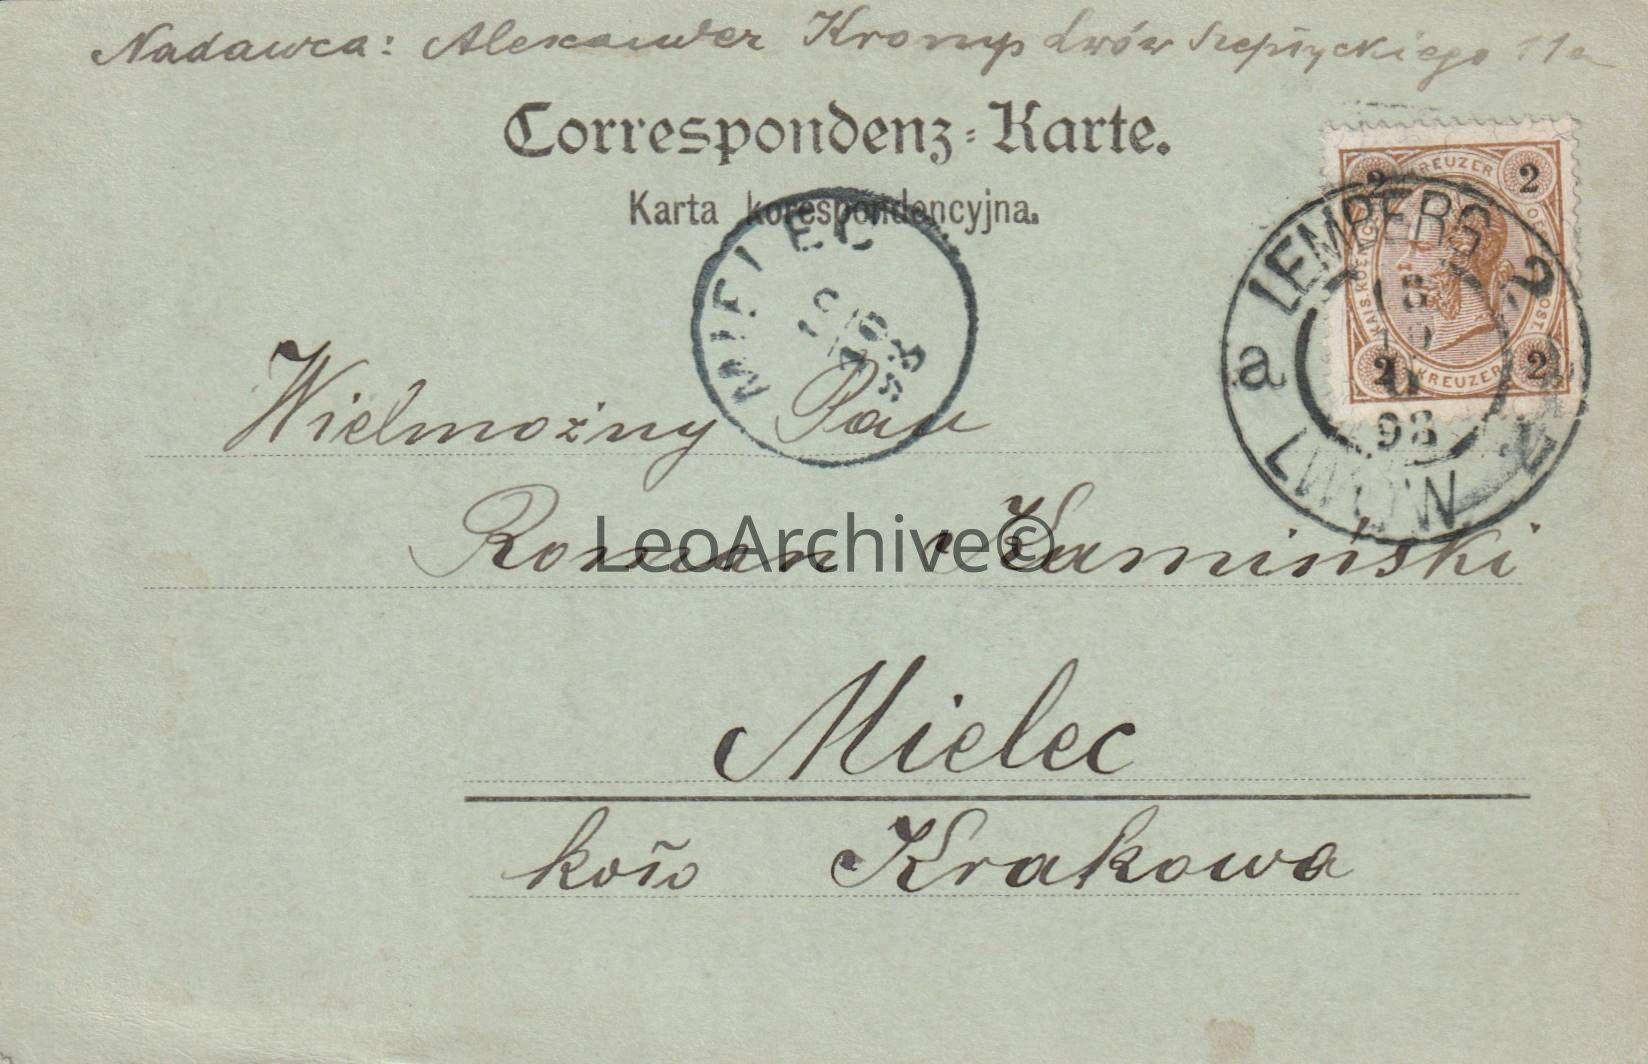 Nadawca: Alexander Kromp Lwów Szeptyckiego 11a
Correspondenz-Karte.
Karta korespondencyjna.
KREUZER
2 2
2 KREUZER 2
LEMBERG 2
a
98
LWÓW 2
MIELEC
10
98
Wielmożny Pan
Roman Kamiński
LeoArchive©
Mielec
koło Krakowa